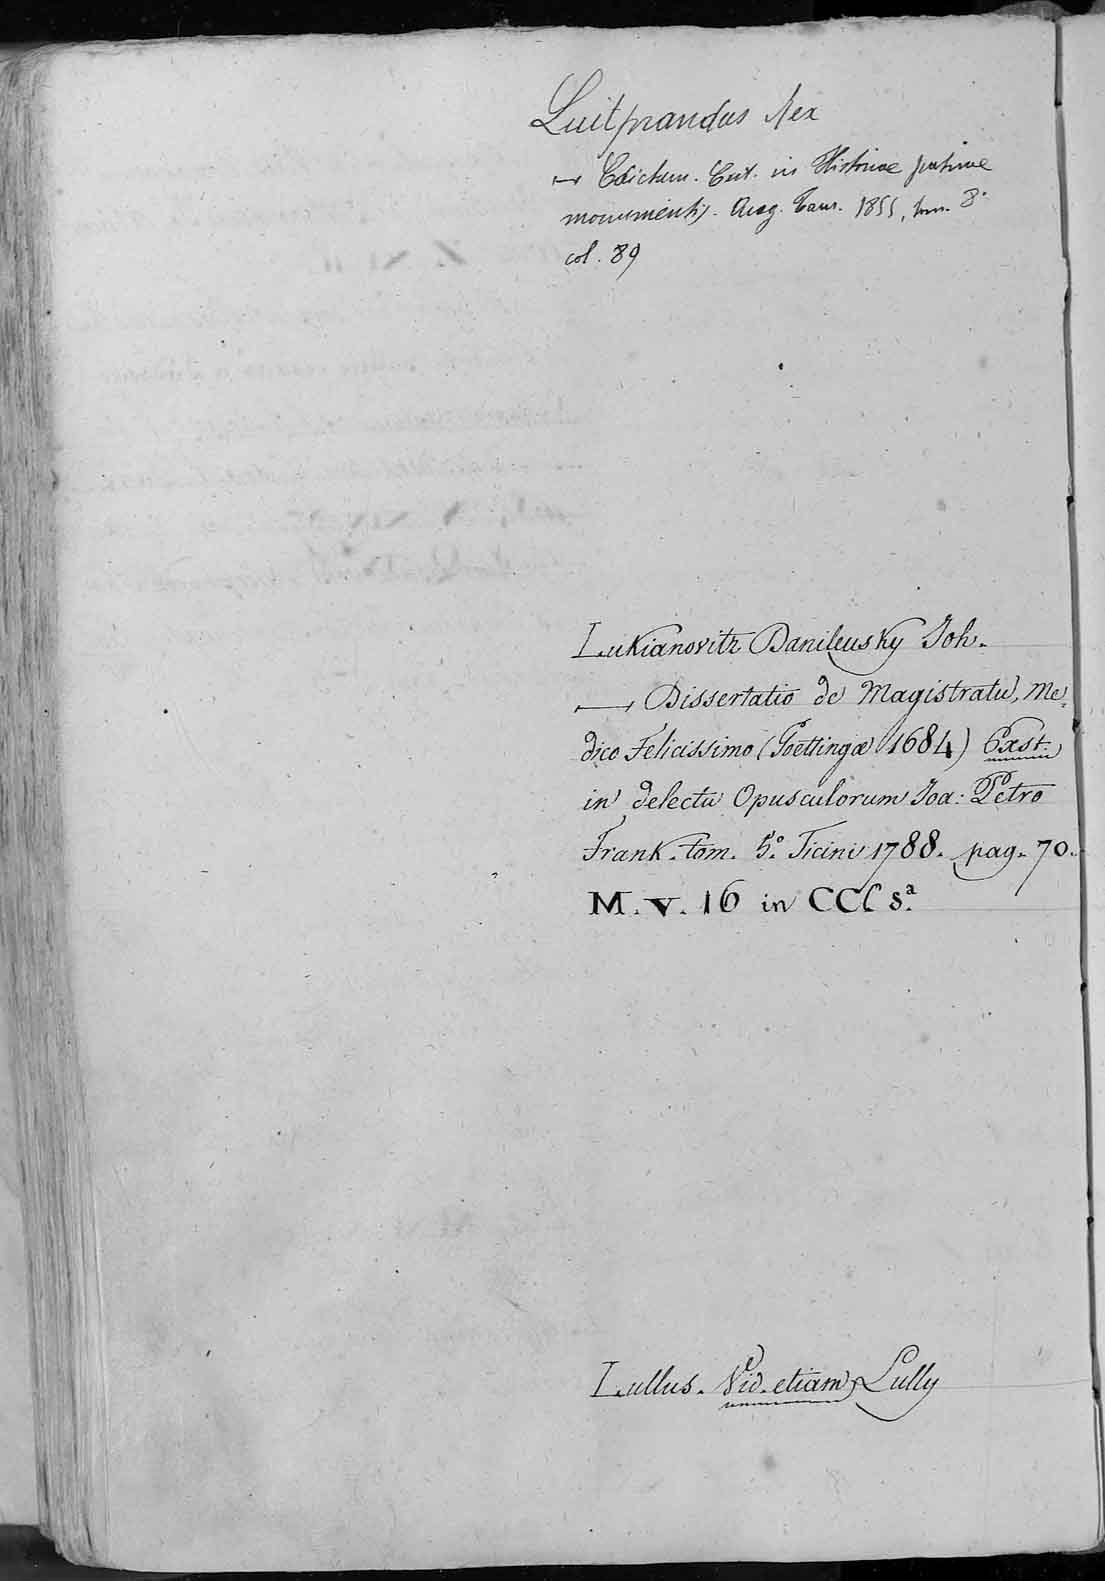 Luitprandus Rex
— Edictum. Ext. in Historiae patriae
monumentis. Aug. Taur. 1855, tom. 8°
col. 89
Lukianovitz Danileusky Joh.
— Dissertatio de Magistratu, Me=
dico Felicissimo (Goettingæ 1684) Exst.
in delectu Opusculorum Joa: Petro
Frank. tom. 5.° Ticini 1788. pag. 70.
M. V. 16 in CCC 8.ª
Lullus. Vid. etiam Lully